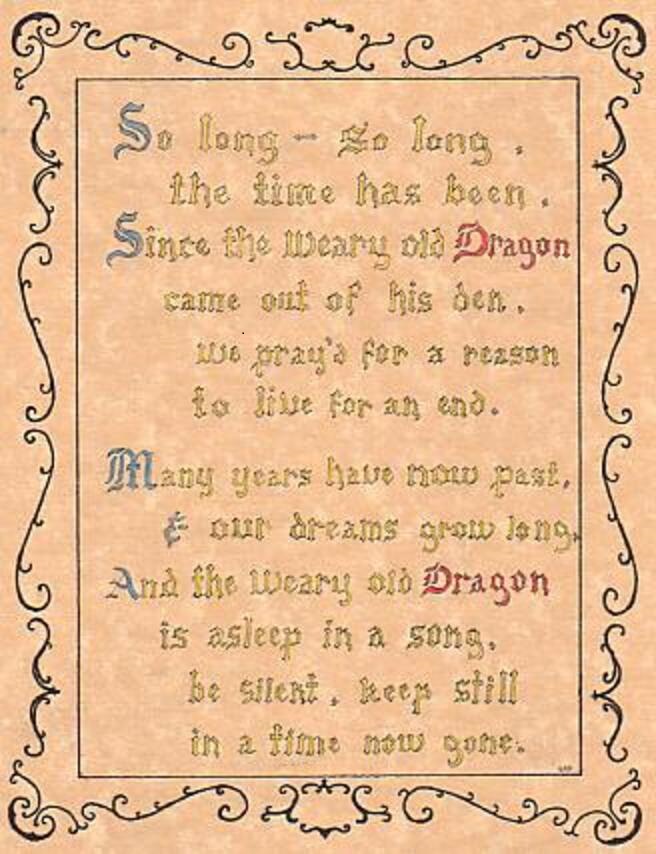 So long - So long,
the time has been,
Since the weary old Dragon
came out of his den.
we pray'd for a reason
to live for an end.
Many years have now past,
& our dreams grow long,
And the weary old Dragon
is asleep in a song,
be silent, keep still
in a time now gone.